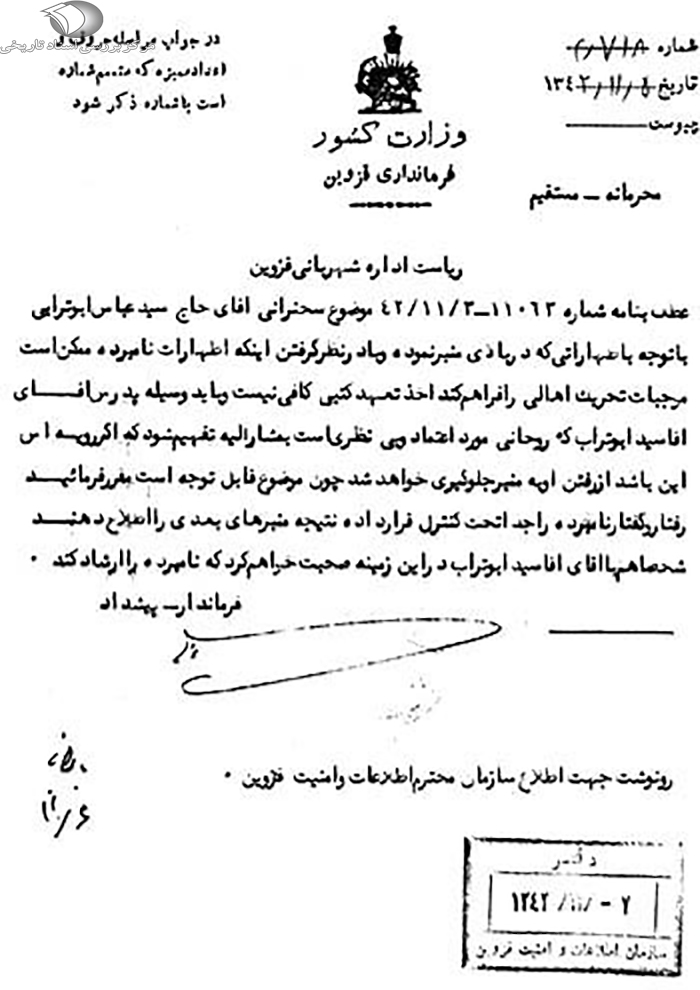 مرکز بررسی اسناد تاریخی
در جواب مراسله حروف و
اعداد سبزه که متمم شماره
است با شماره ذکر شود
شماره
تاریخ ۱۳۴۲/۱۱/۵
پیوست
وزارت کشور
فرمانداری قزوین
محرمانه – مستقیم
ریاست اداره شهربانی قزوین
عطف بنامه شماره ۱۱۰۶۳–۴۲/۱۱/۳ موضوع سخنرانی اقای حاج سید عباس ابوترابی
با توجه باظهاراتی که در بالای منبر نموده و با در نظر گرفتن اینکه اظهارات نامبرده ممکن است
موجبات تحریک اهالی را فراهم کند اخذ تعهد کتبی کافی نیست و باید وسیله پدرس اقای
اقا سید ابوتراب که روحانی مورد اعتماد وبی نظری است بمشارالیه تفهیم شود که اگر رویه اس
این باشد از رفتن او به منبر جلوگیری خواهد شد چون موضوع قابل توجه است مقرر فرمائید
رفتار و گفتار نامبرده را جدا تحت کنترل قرار داده نتیجه منبرهای بعدی را اطلاع دهند
شخصا هم با اقای اقا سید ابوتراب در این زمینه صحبت خواهم کرد که نامبرده را ارشاد کند .
فرماندار – پیشداد
رونوشت جهت اطلاع سازمان محترم اطلاعات وامنیت قزوین .
دفتر
۱۳۴۲ /۱۱/ - ۷
سازمان اطلاعات و امنیت قزوین